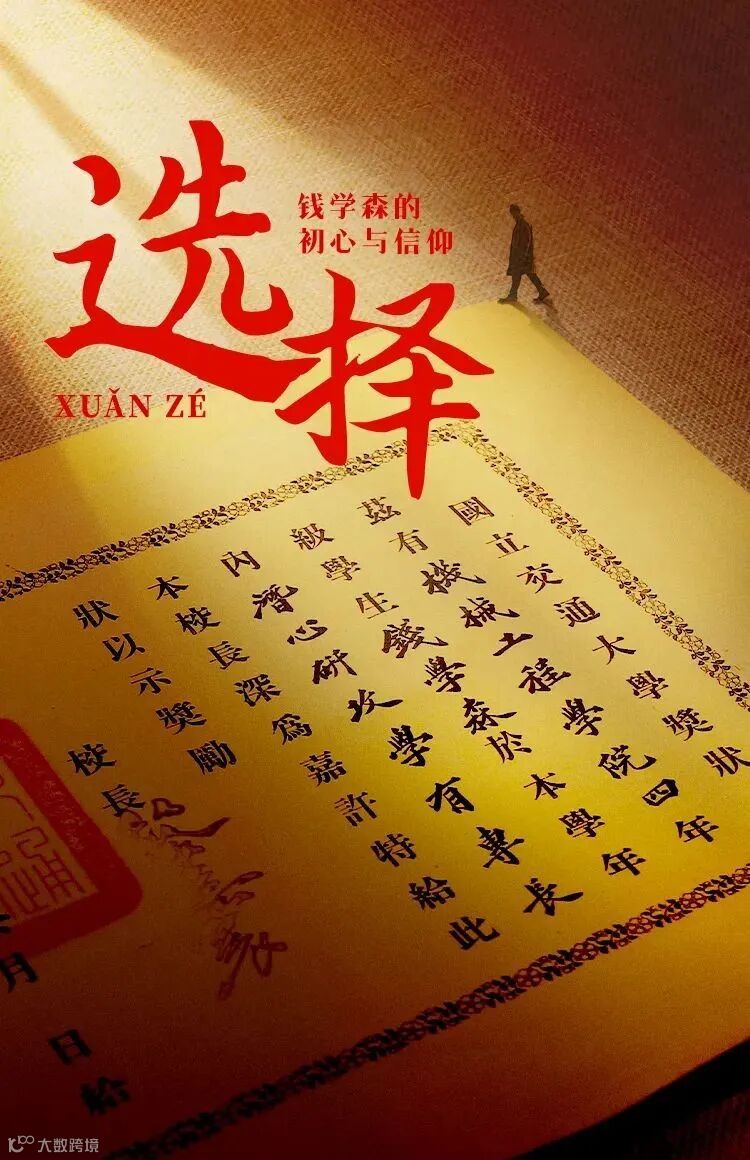 选择
XUǍN ZÉ
钱学森的
初心与信仰
國立交通大學獎狀
茲有機械工程學院四年
級學生錢學森於本學年
內潛心研攻學有專長
本校長深爲嘉許特給此
狀以示獎勵
校長
月 日給
大数跨境